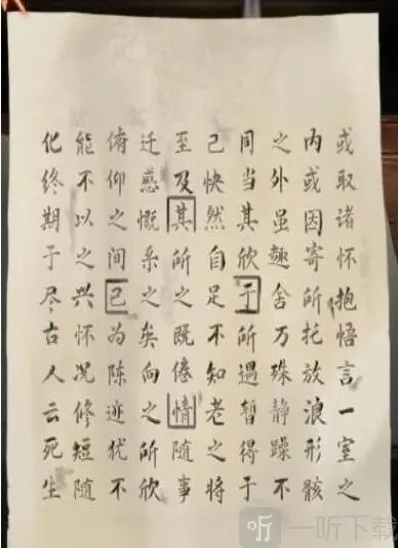 或取诸怀抱悟言一室之
内或因寄所托放浪形骸
之外虽趣舍万殊静躁不
同当其欣于所遇暂得于
己快然自足不知老之将
至及其所之既倦情随事
迁感慨系之矣向之所欣
俯仰之间已为陈迹犹不
能不以之兴怀况修短随
化终期于尽古人云死生
听 一听下载